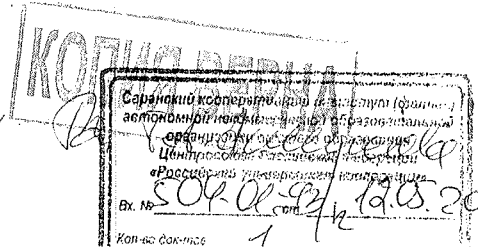 КОПИЯ ВЕРНА
Саранский кооперативный институт (филиал)
автономной некоммерческой образовательной
организации высшего образования
Центросоюза Российской Федерации
«Российский университет кооперации»
Вх. № 504-01-93/ от 12.05.20
Кол-во док-тов 1